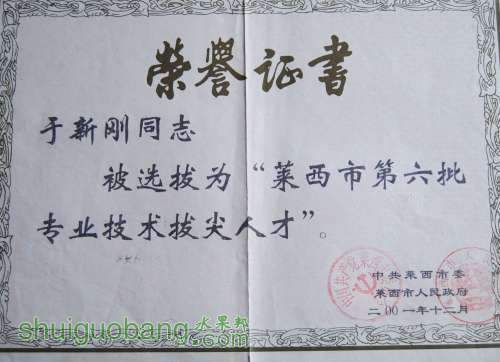 榮譽证書
于新刚同志
被选拔为“莱西市第六批
专业技术拔尖人才”。
中共莱西市委
莱西市人民政府
二〇〇一年十二月
shuiguobang.com
水果邦